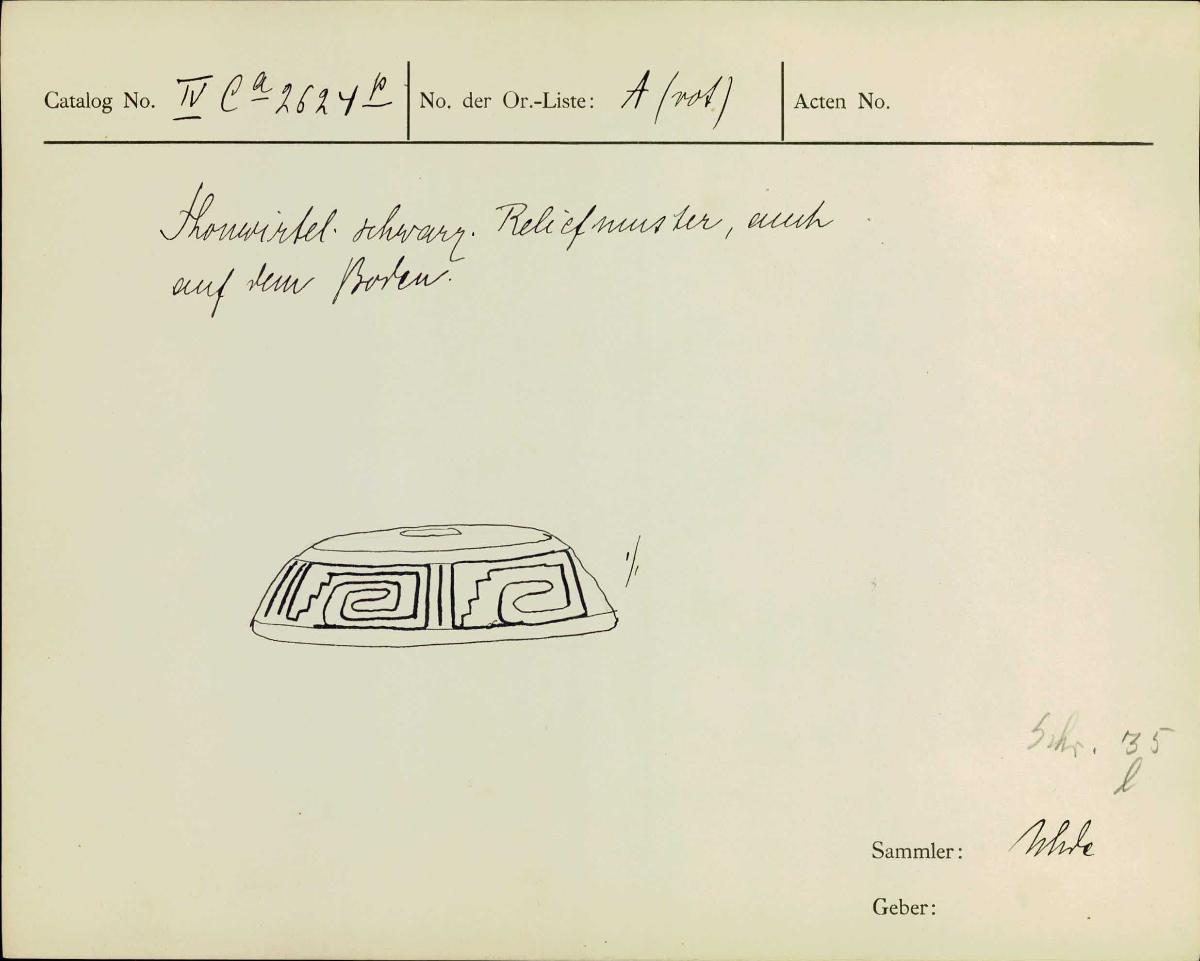 Catalog No. IV Ca 2624 p No. der Or.-Liste: A (rot) Acten No.
Thonwirtel. schwarz. Reliefmuster, auch
auf dem Boden.
1/1
Schr. 35
l
Sammler: Uhde
Geber: